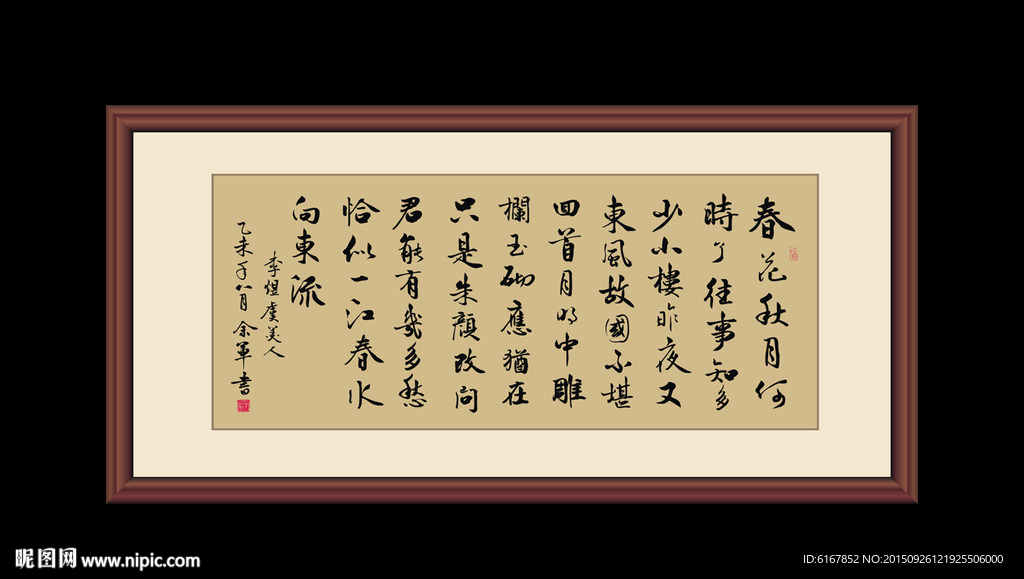 春花秋月何
時了往事知多
少小樓昨夜又
東風故國不堪
回首月明中雕
欄玉砌應猶在
只是朱顏改問
君能有幾多愁
恰似一江春水
向東流
李煜虞美人
乙未年八月余軍書
昵图网 www.nipic.com
ID:6167852 NO:20150926121925506000